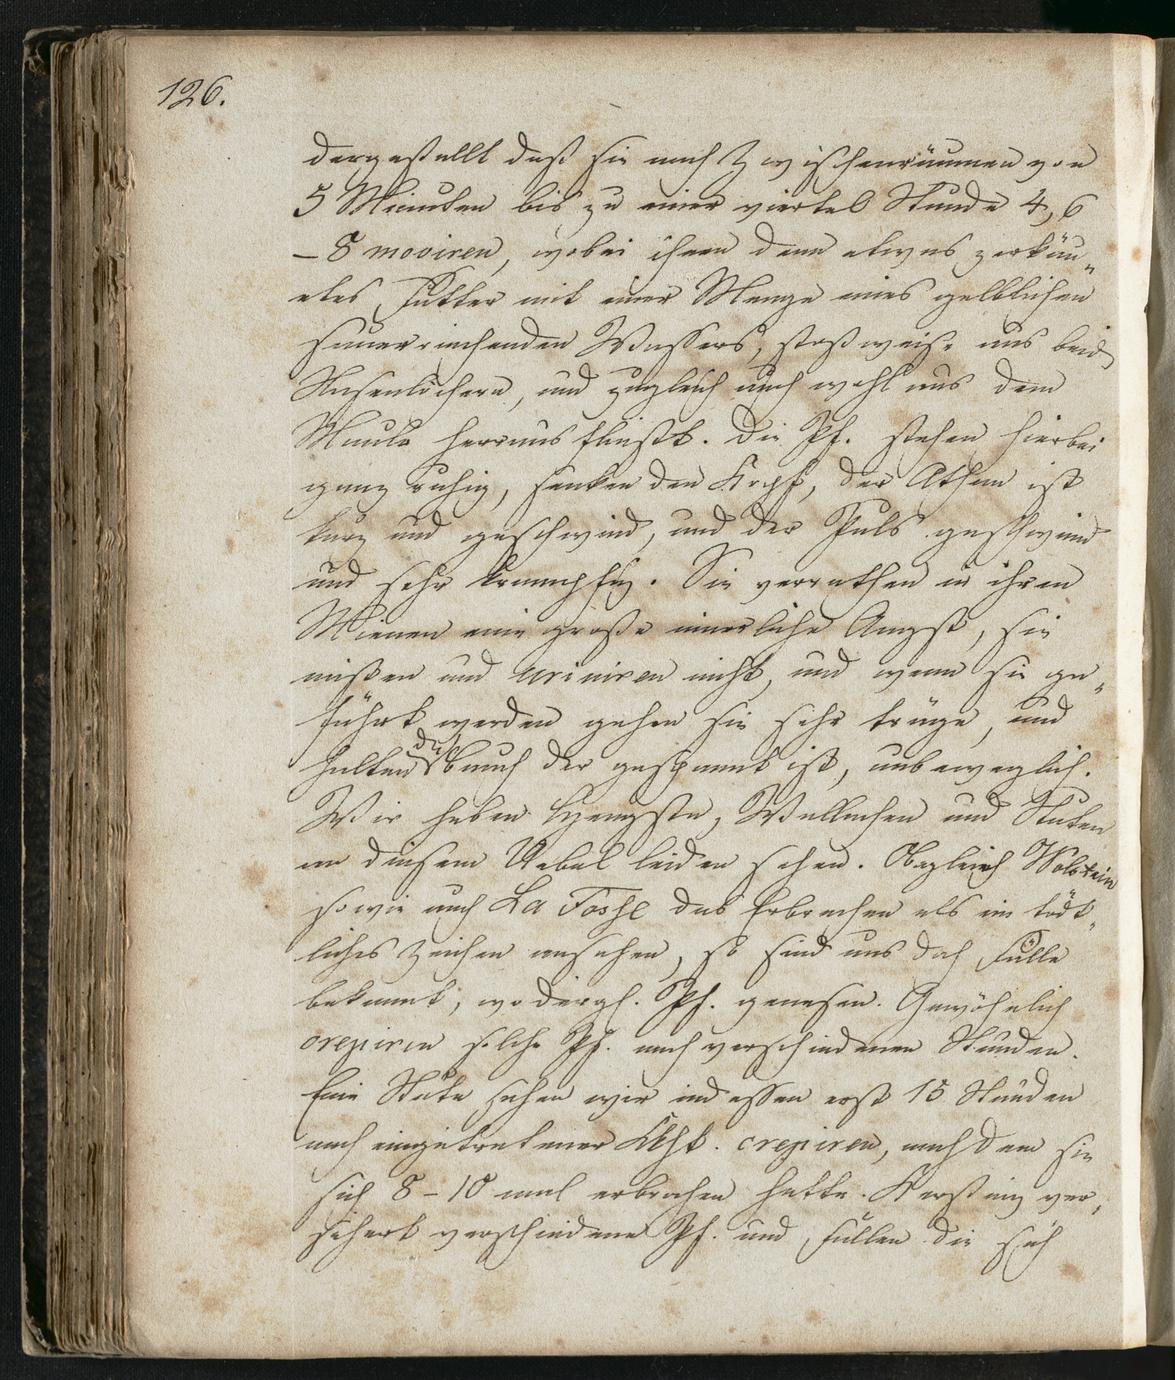 126.
dergestallt daß sie nach Zwischenräumen von
5 Minuten bis zu einer viertel Stunde 4, 6
– 8 moviren, wobei ihnen dann etwas zerkäu„
etes Futter mit einer Menge eines gelblichen
sauerriechenden Wassers, stoßweise aus beid
Nasenlöchern, und zugleich auch wohl aus dem
Maule herraus fließt. Die Pf. stehen hierbei
ganz ruhig, senken den Kopf, der Athem ist
kurz und geschwind, und der Puls geschwind
und sehr krampfig. Sie verrathen in ihren
Mienen eine große innerliche Angst, sie
mißen und uriniren nicht, und wenn sie ge„
führt werden gehen sie sehr träge, und
halten den Bauch der gespannt ist, unbeweglich.
Wir haben Hengste, Wallachen und Stuten
an diesem Uebel leiden sehen. Obgleich Wolstein
sowie auch La Fosse das Erbrechen als ein tödt„
liches Zeichen ansehen, so sind uns doch Fälle
bekannt, wo dergl. Pf. genesen. Gewöhnlich
crepiren solche Pf. nach verschiedenen Stunden.
Eine Stute sahen wir indessen erst 15 Stunden
nach eingetretener Kkht. crepiren, nachdem sie
sich 8 – 10 mal erbrochen hatte. Kersting ver„
sichert verschiedene Pf. und Füllen die sich